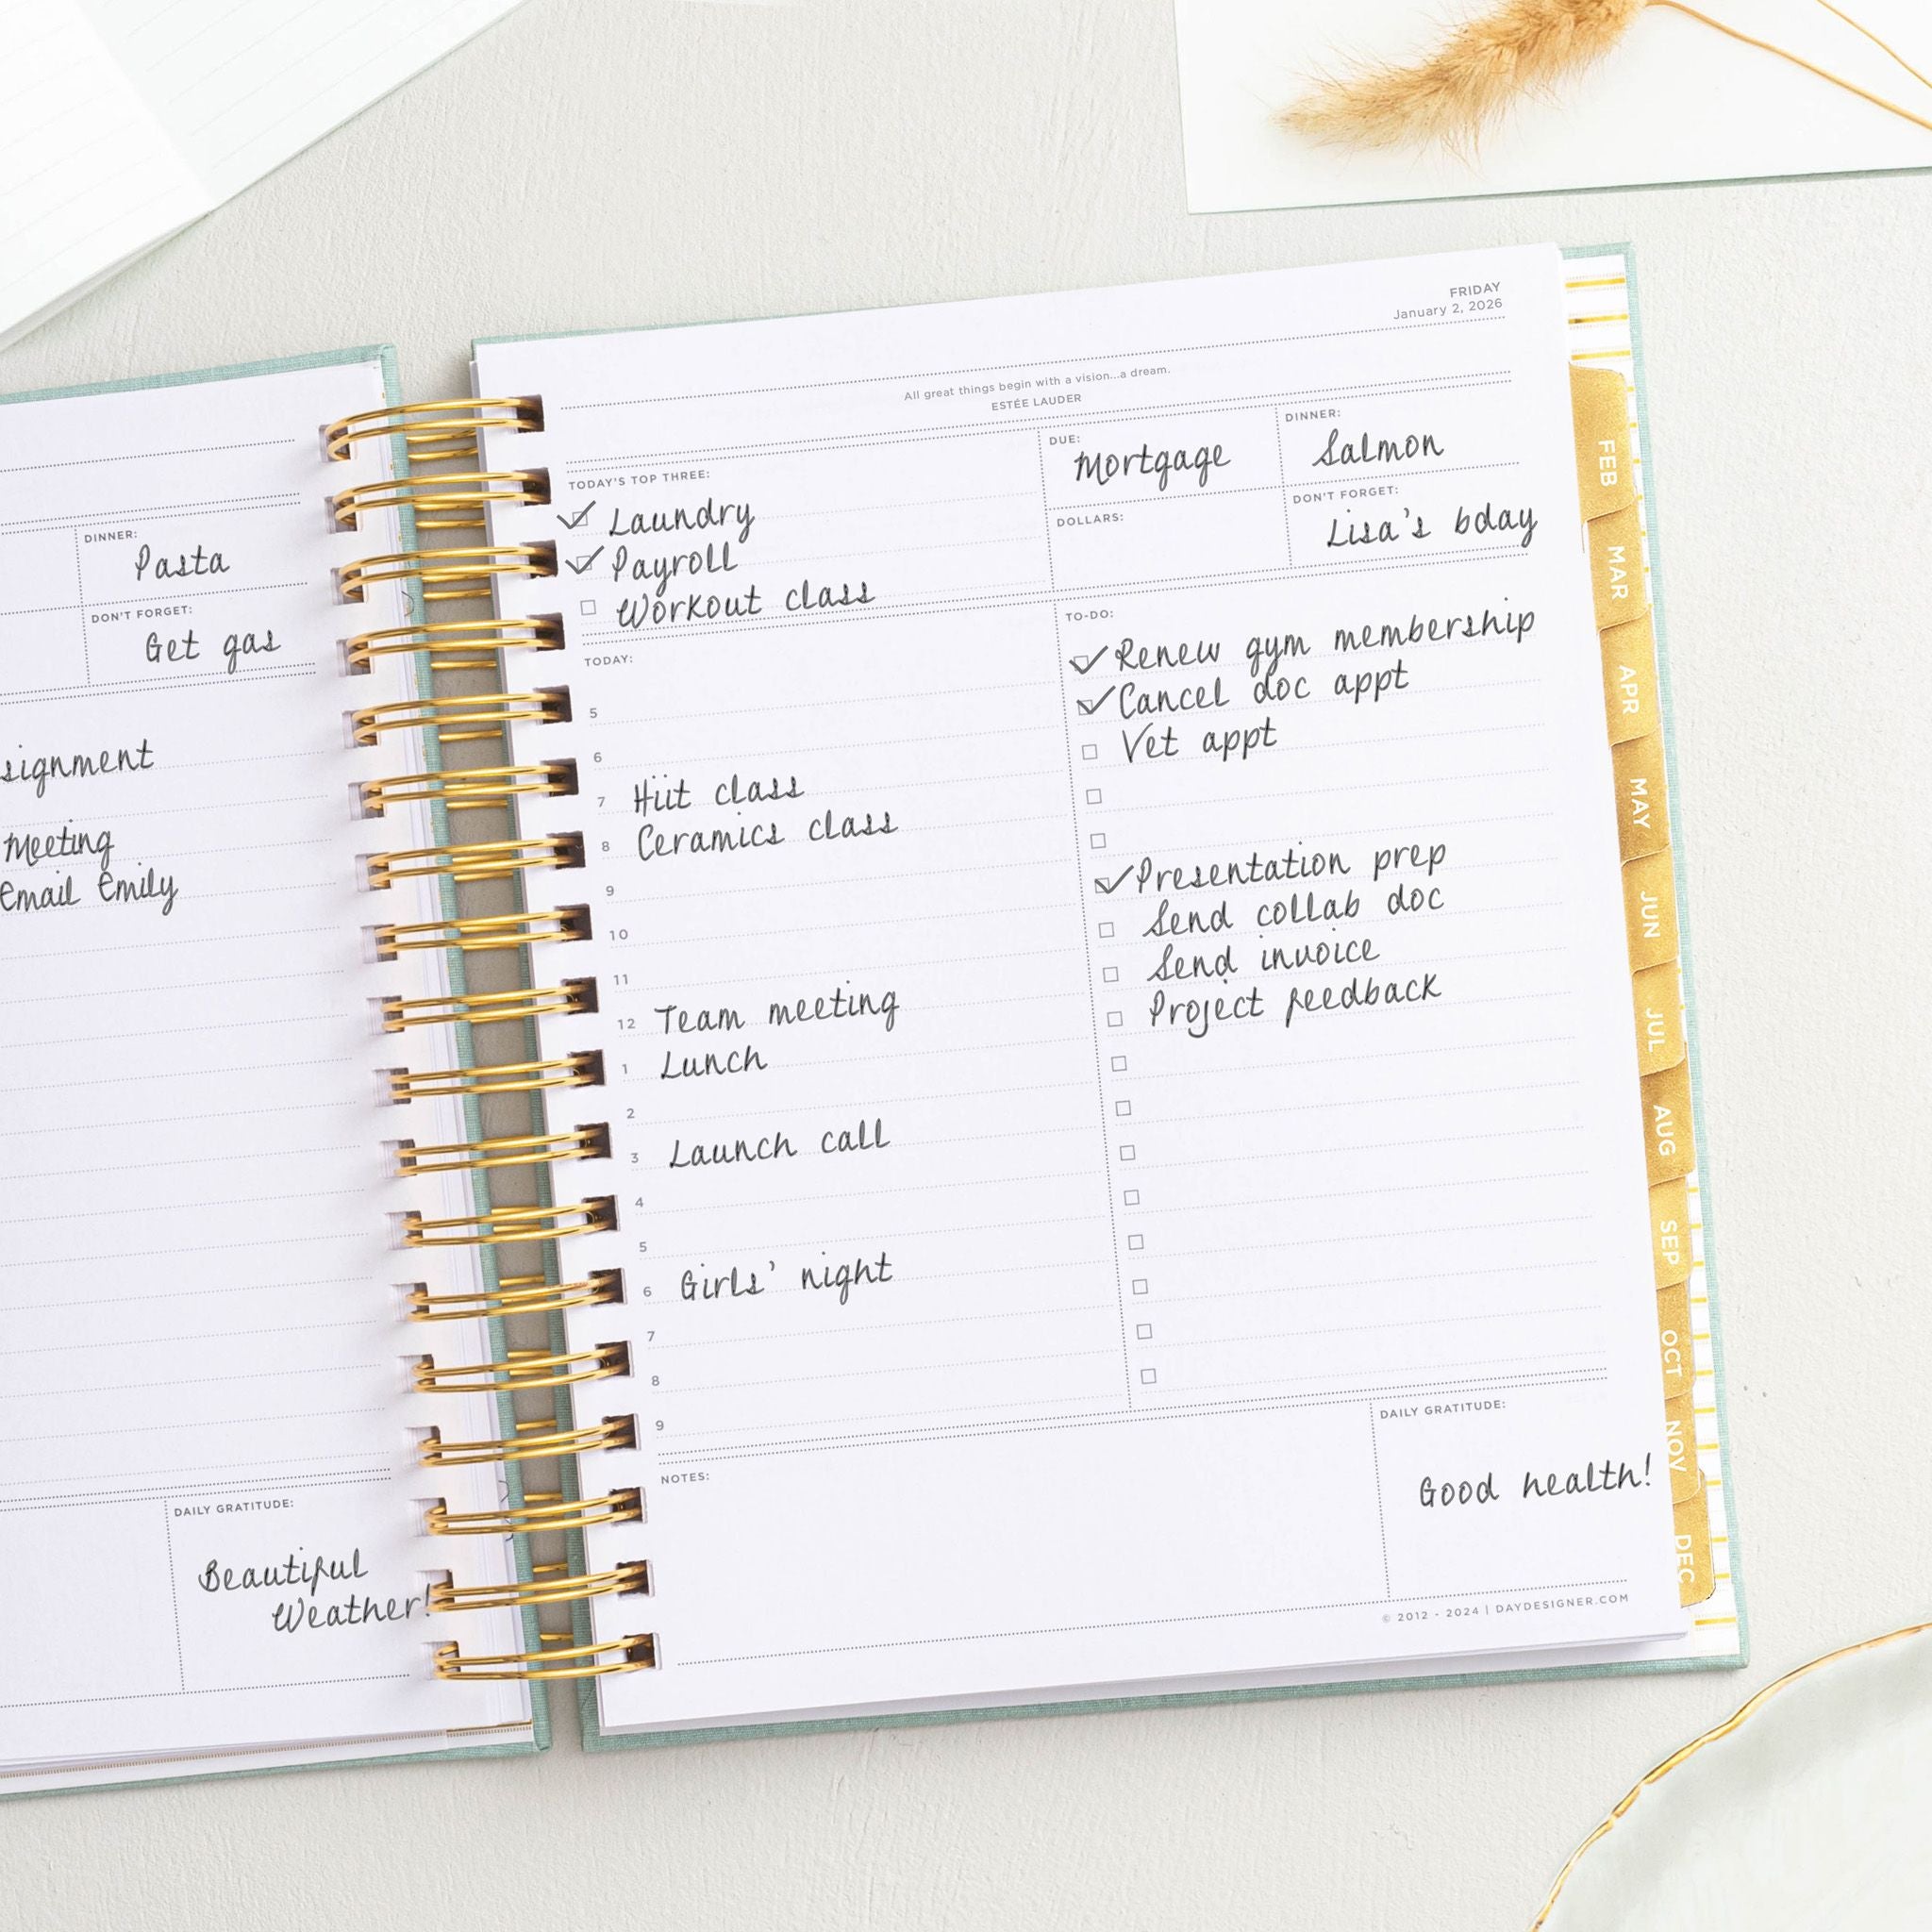 DINNER:
Pasta
DON'T FORGET:
Get gas
Meeting
Email Emily
DAILY GRATITUDE:
Beautiful
Weather!
FRIDAY
January 2, 2026
All great things begin with a vision...a dream.
ESTÉE LAUDER
TODAY'S TOP THREE:
Laundry
Payroll
Workout class
DUE:
Mortgage
DINNER:
Salmon
DOLLARS:
DON'T FORGET:
Lisa's bday
TODAY:
5
6
7 Hiit class
8 Ceramics class
9
10
11
12 Team meeting
1 Lunch
2
3 Launch call
4
5
6 Girls' night
7
8
9
TO-DO:
Renew gym membership
Cancel doc appt
Vet appt
Presentation prep
Send collab doc
Send invoice
Project feedback
NOTES:
DAILY GRATITUDE:
Good health!
© 2012 - 2024 | DAYDESIGNER.COM
FEB
MAR
APR
MAY
JUN
JUL
AUG
SEP
OCT
NOV
DEC